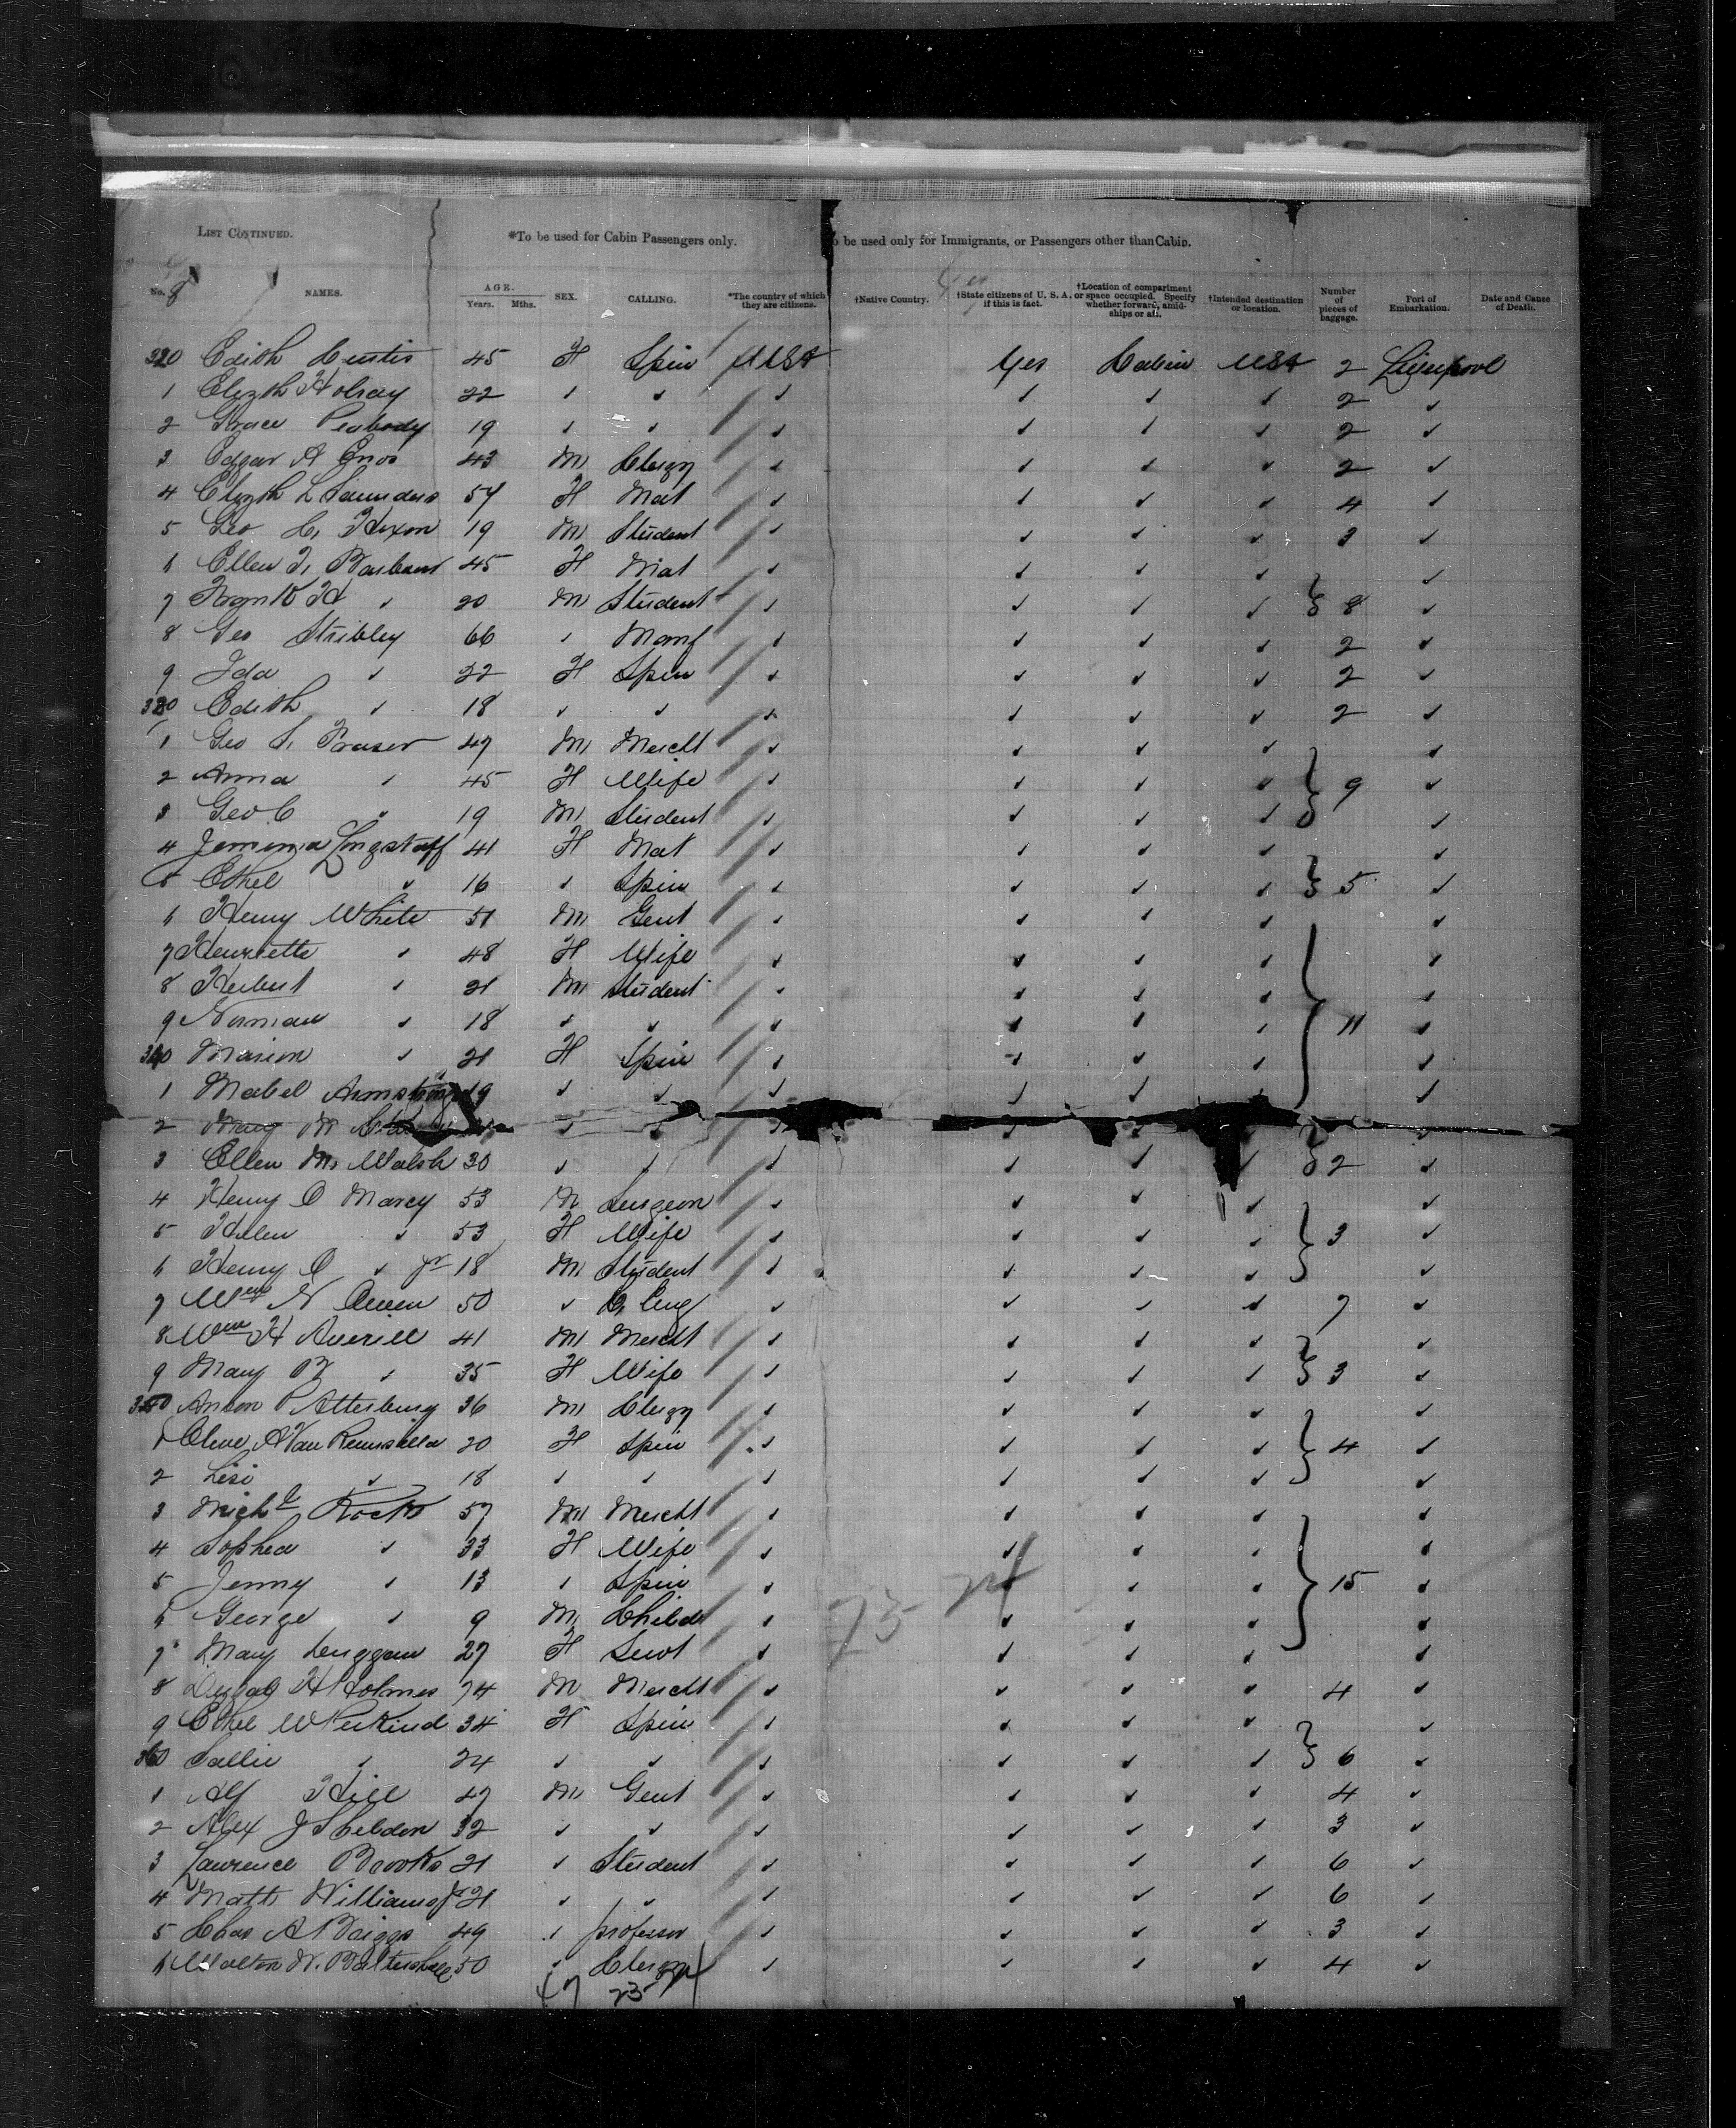 LIST CONTINUED.
*To be used for Cabin Passengers only.
o be used only for Immigrants, or Passengers other than Cabin.
No. NAMES. AGE. Years. Mths. SEX. CALLING. *The country of which they are citizens. †Native Country. †State citizens of U. S. A. if this is fact. †Location of compartment or space occupied. Specify whether forward, amidships or aft. †Intended destination or location. Number of pieces of baggage. Port of Embarkation. Date and Cause of Death.
320 Edith Curtis 45 F Spin USA Yes Cabin USA 2 Liverpool
1 Elizth 22 ✓ ✓ ✓ ✓ ✓ ✓ 2 ✓
2 Grace Peabody 19 ✓ ✓ ✓ ✓ ✓ ✓ 2 ✓
3 Edgar A Enos 43 M Clergy ✓ ✓ ✓ ✓ 2 ✓
4 Elizth L Saunders 54 F Mat ✓ ✓ ✓ ✓ 4 ✓
5 Geo C. Hixon 19 M Student ✓ ✓ ✓ ✓ 3 ✓
6 Ellen F. Barbour 45 F Mat ✓ ✓ ✓ ✓ ✓
7 Frank H ✓ 20 M Student ✓ ✓ ✓ ✓ 8 ✓
8 Geo Stribley 66 ✓ Manf ✓ ✓ ✓ ✓ 2 ✓
9 Ida ✓ 22 F Spin ✓ ✓ ✓ ✓ 2 ✓
330 Edith ✓ 18 ✓ ✓ ✓ ✓ ✓ ✓ 2 ✓
1 Geo S. Fraser 47 M Mercht ✓ ✓ ✓ ✓ ✓
2 Anna ✓ 45 F Wife ✓ ✓ ✓ ✓ 9 ✓
3 Geo C ✓ 19 M Student ✓ ✓ ✓ ✓ ✓
4 Jemima Longstaff 41 F Mat ✓ ✓ ✓ ✓ ✓
5 Ethel ✓ 16 ✓ Spin ✓ ✓ ✓ ✓ 5 ✓
6 Henry White 51 M Gent ✓ ✓ ✓ ✓ ✓
7 Henrietta ✓ 48 F Wife ✓ ✓ ✓ ✓ ✓
8 Herbert ✓ 21 M Student ✓ ✓ ✓ ✓ ✓
9 Norman ✓ 18 ✓ ✓ ✓ ✓ ✓ ✓ 11 ✓
340 Marion ✓ 21 F Spin ✓ ✓ ✓ ✓ ✓
1 Mabel Armstrong 19 ✓ ✓ ✓ ✓ ✓ ✓ ✓
2 Mary M ✓ ✓ ✓ ✓ ✓ ✓
3 Ellen M. Walsh 30 ✓ ✓ ✓ ✓ ✓ ✓ 2 ✓
4 Henry O Marcy 53 M Surgeon ✓ ✓ ✓ ✓ ✓
5 Helen ✓ 53 F Wife ✓ ✓ ✓ ✓ 3 ✓
6 Henry O ✓ Jr 18 M Student ✓ ✓ ✓ ✓ ✓
7 Wm N 50 ✓ C. Eng ✓ ✓ ✓ ✓ 7 ✓
8 Wm H Averill 41 M Mercht ✓ ✓ ✓ ✓ ✓
9 Mary B ✓ 35 F Wife ✓ ✓ ✓ ✓ 3 ✓
350 Anson P Atterbury 36 M Clergy ✓ ✓ ✓ ✓ ✓
1 Olive A Van 20 F Spin ✓ ✓ ✓ ✓ 4 ✓
2 ✓ 18 ✓ ✓ ✓ ✓ ✓ ✓ ✓
3 Michl Kocks 57 M Mercht ✓ ✓ ✓ ✓ ✓
4 Sophea ✓ 33 F Wife ✓ ✓ ✓ ✓ ✓
5 Jenny ✓ 13 ✓ Spin ✓ ✓ ✓ ✓ 15 ✓
6 George ✓ 9 M Child ✓ ✓ ✓ ✓ ✓
7 Mary Duggan 27 F Servt ✓ ✓ ✓ ✓ ✓
8 H Holmes 74 M Mercht ✓ ✓ ✓ ✓ 4 ✓
9 Ethel W 34 F Spin ✓ ✓ ✓ ✓ ✓
360 Sallie ✓ 24 ✓ ✓ ✓ ✓ ✓ ✓ 6 ✓
1 Alf Hill 47 M Gent ✓ ✓ ✓ ✓ 4 ✓
2 Alex J Sheldon 32 ✓ ✓ ✓ ✓ ✓ ✓ 3 ✓
3 Lawrence Brooks 21 ✓ Student ✓ ✓ ✓ ✓ 6 ✓
4 Matt Williams Jr 21 ✓ ✓ ✓ ✓ ✓ ✓ 6 ✓
5 Chas A Briggs 49 ✓ professor ✓ ✓ ✓ ✓ 3 ✓
6 Walton W. Battershall 50 ✓ Clergy ✓ ✓ ✓ ✓ 4 ✓
47 23 24